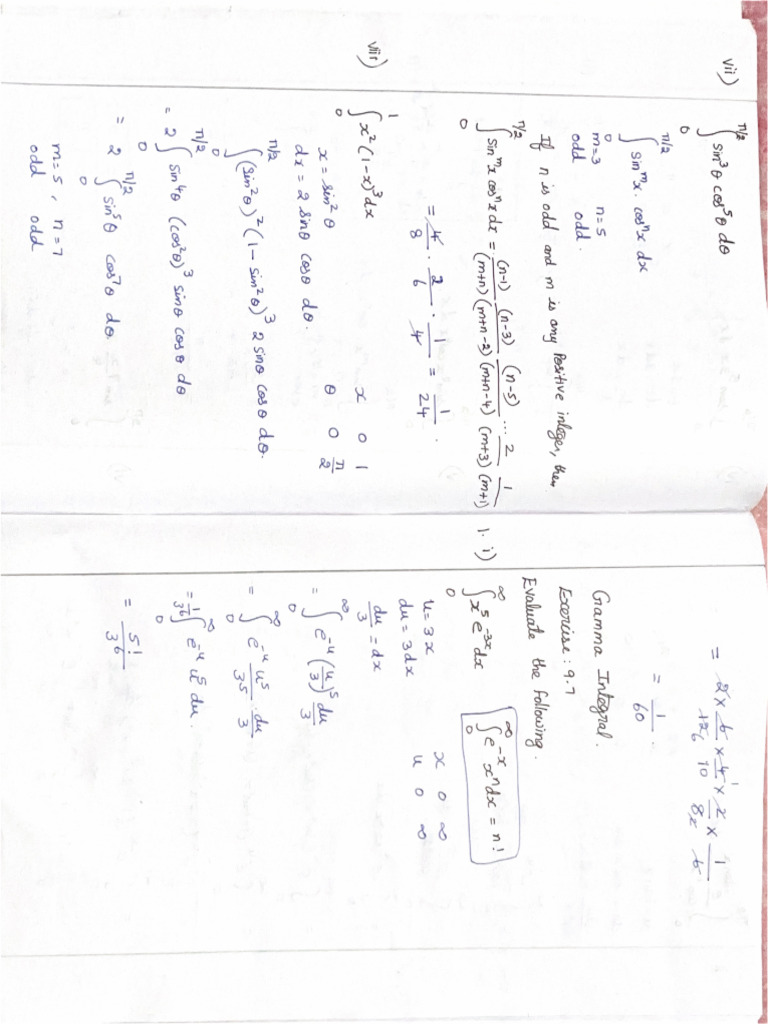 vii) ∫₀^(π/2) sin³θ cos⁵θ dθ
∫₀^(π/2) sinᵐx . cosⁿx dx
m=3 n=5
odd odd.
If n is odd and m is any Positive integer, then
∫₀^(π/2) sinᵐx cosⁿx dx = (n-1)/(m+n) (n-3)/(m+n-2) (n-5)/(m+n-4) ... 2/(m+3) 1/(m+1)
= 4/8 . 2/6 . 1/4 = 1/24 .
viii) ∫₀¹ x²(1-x)³dx
x = sin²θ x 0 1
dx = 2 sinθ cosθ dθ. θ 0 π/2
∫₀^(π/2) (sin²θ)² (1 - sin²θ)³ 2 sinθ cosθ dθ.
= 2 ∫₀^(π/2) sin⁴θ (cos²θ)³ sinθ cosθ dθ
= 2 ∫₀^(π/2) sin⁵θ cos⁷θ dθ.
m=5, n=7
odd odd
= 2 × 6/12 × 4/10 × 2/8 × 1/6
6 1
= 1/60 .
Gamma Integral.
Exercise: 9.7
Evaluate the following.
1. i) ∫₀^∞ x⁵ e^(-3x) dx ∫₀^∞ e^(-x) xⁿ dx = n!
u = 3x x 0 ∞
du = 3dx u 0 ∞
du/3 = dx
= ∫₀^∞ e^(-u) (u/3)⁵ du/3
= ∫₀^∞ e^(-u) u⁵/3⁵ . du/3
= 1/3⁶ ∫₀^∞ e^(-u) u⁵ du.
= 5!/3⁶